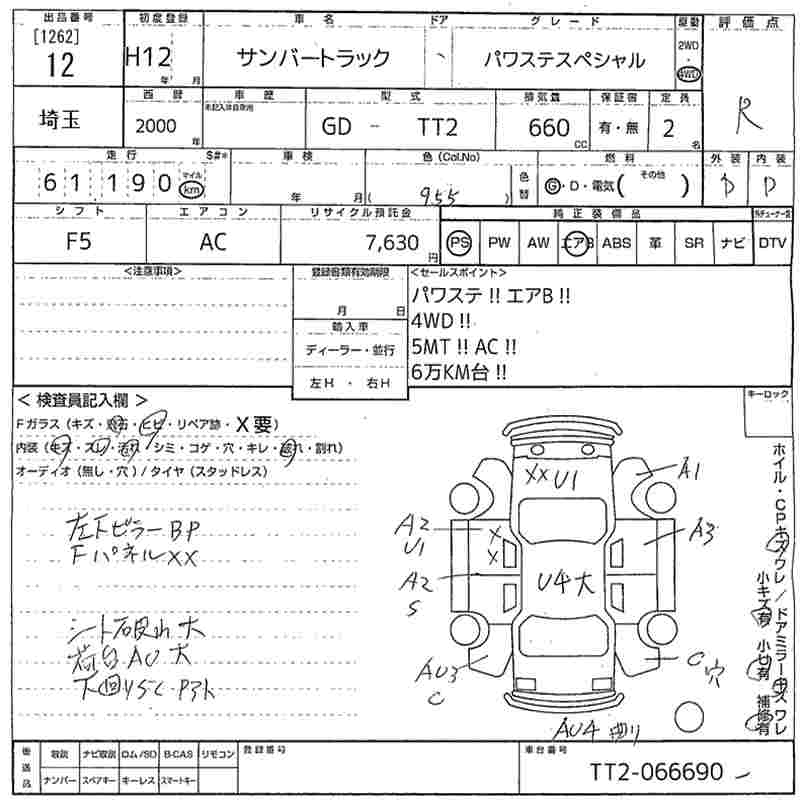 出品番号 初度登録 車名 ドア グレード 駆動 評価点
[1262] 12 H12 年 月 サンバートラック パワステスペシャル 2WD・4WD R
埼玉 西暦 車歴 型式 排気量 保証書 定員
2000 年 未記入は自家用 GD － TT2 660 CC 有・無 2 名
走行 S#* 車検 色(Col.No) 燃料 外装 内装
61,190 マイル km 年 月 ( 955 ) 色替 G・D・電気( その他 ) D D
シフト エアコン リサイクル預託金 純正装備品
F5 AC 7,630 円 PS PW AW エアB ABS 革 SR ナビ DTV
<注意事項> 登録書類有効期限 <セールスポイント>
月 日 パワステ !! エアB !!
輸入車 4WD !!
ディーラー・並行 5MT !! AC !!
左H ・ 右H 6万KM台 !!
< 検査員記入欄 > キーロック
Fガラス (キズ・飛石・ヒビ・リペア跡・X要)
内装 (キズ・スレ・汚れ・シミ・コゲ・穴・キレ・破れ・割れ)
オーディオ (無し・穴) / タイヤ (スタッドレス)
左Fピラー BP
Fパネル XX
シート破れ 大
荷台AU大
下回りSC P3ト
XXU1
A1
A2
U1
X
X
A3
A2
S
U4大
AU3
C
C穴
AU4 曲り
ホイル・CPキズワレ/ドアミラーキズワレ
小キズ有 小U有 補修有
後送品 取説 ナビ取説 ロム/SD B-CAS リモコン 登録番号 車台番号
ナンバー スペアキー キーレス スマートキー TT2-066690